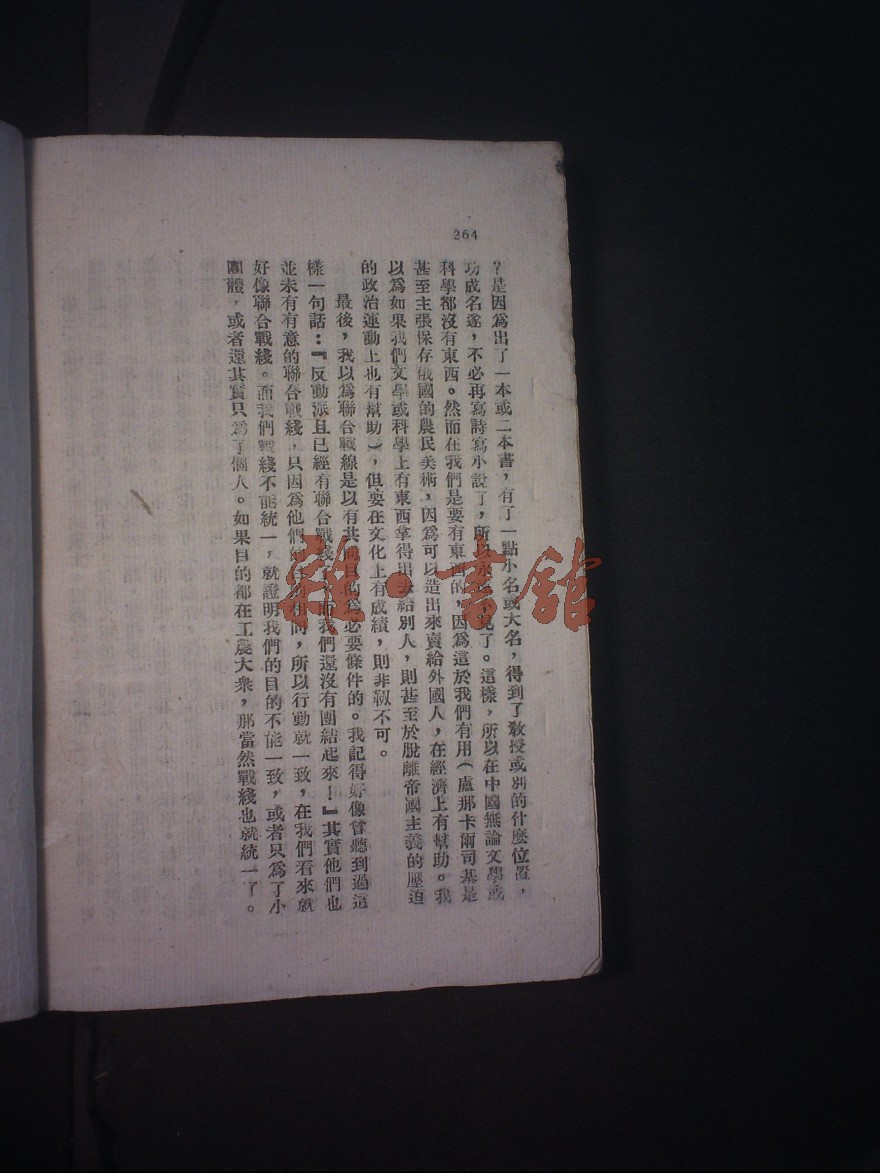 264
？是因爲出了一本或二本書，有了一點小名或大名，得到了敎授或別的什麼位置，
功成名遂，不必再寫詩寫小說了，所以永遠不見了。這樣，所以在中國無論文學或
科學都沒有東西。然而在我們是要有東西的，因爲這於我們有用（盧那卡爾司基是
甚至主張保存俄國的農民美術，因爲可以造出來賣給外國人，在經濟上有幫助。我
以爲如果我們文學或科學上有東西拿得出去給別人，則甚至於脫離帝國主義的壓迫
的政治運動上也有幫助），但要在文化上有成績，則非韌不可。
最後，我以爲聯合戰線是以有共同目的爲必要條件的。我記得好像曾聽到過這
樣一句話：『反動派且已經有聯合戰綫了，而我們還沒有團結起來！』其實他們也
並未有有意的聯合戰綫，只因爲他們的目的相同，所以行動就一致，在我們看來就
好像聯合戰綫。而我們戰綫不能統一，就證明我們的目的不能一致，或者只爲了小
團體，或者還其實只爲了個人。如果目的都在工農大衆，那當然戰綫也就統一了。
雜·書館